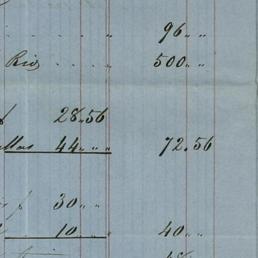 . . . . 96 „ „
Rio . . . . 500 „ „
f 28.56
44 „ „ 72.56
f 30 „ „
10 „ „ 40 „ „